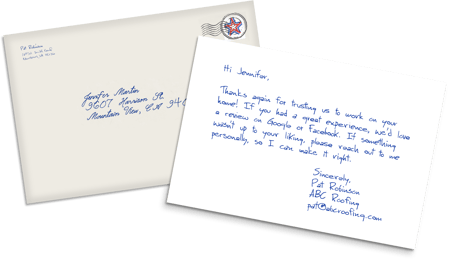 Pat Robinson
Jennifer Martin
Mountain View, CA
Hi Jennifer,
Thanks again for trusting us to work on your
home! If you had a great experience, we'd love
a review on Google or Facebook. If something
wasn't up to your liking, please reach out to me
personally, so I can make it right.
Sincerely,
Pat Robinson
ABC Roofing
pat@abcroofing.com